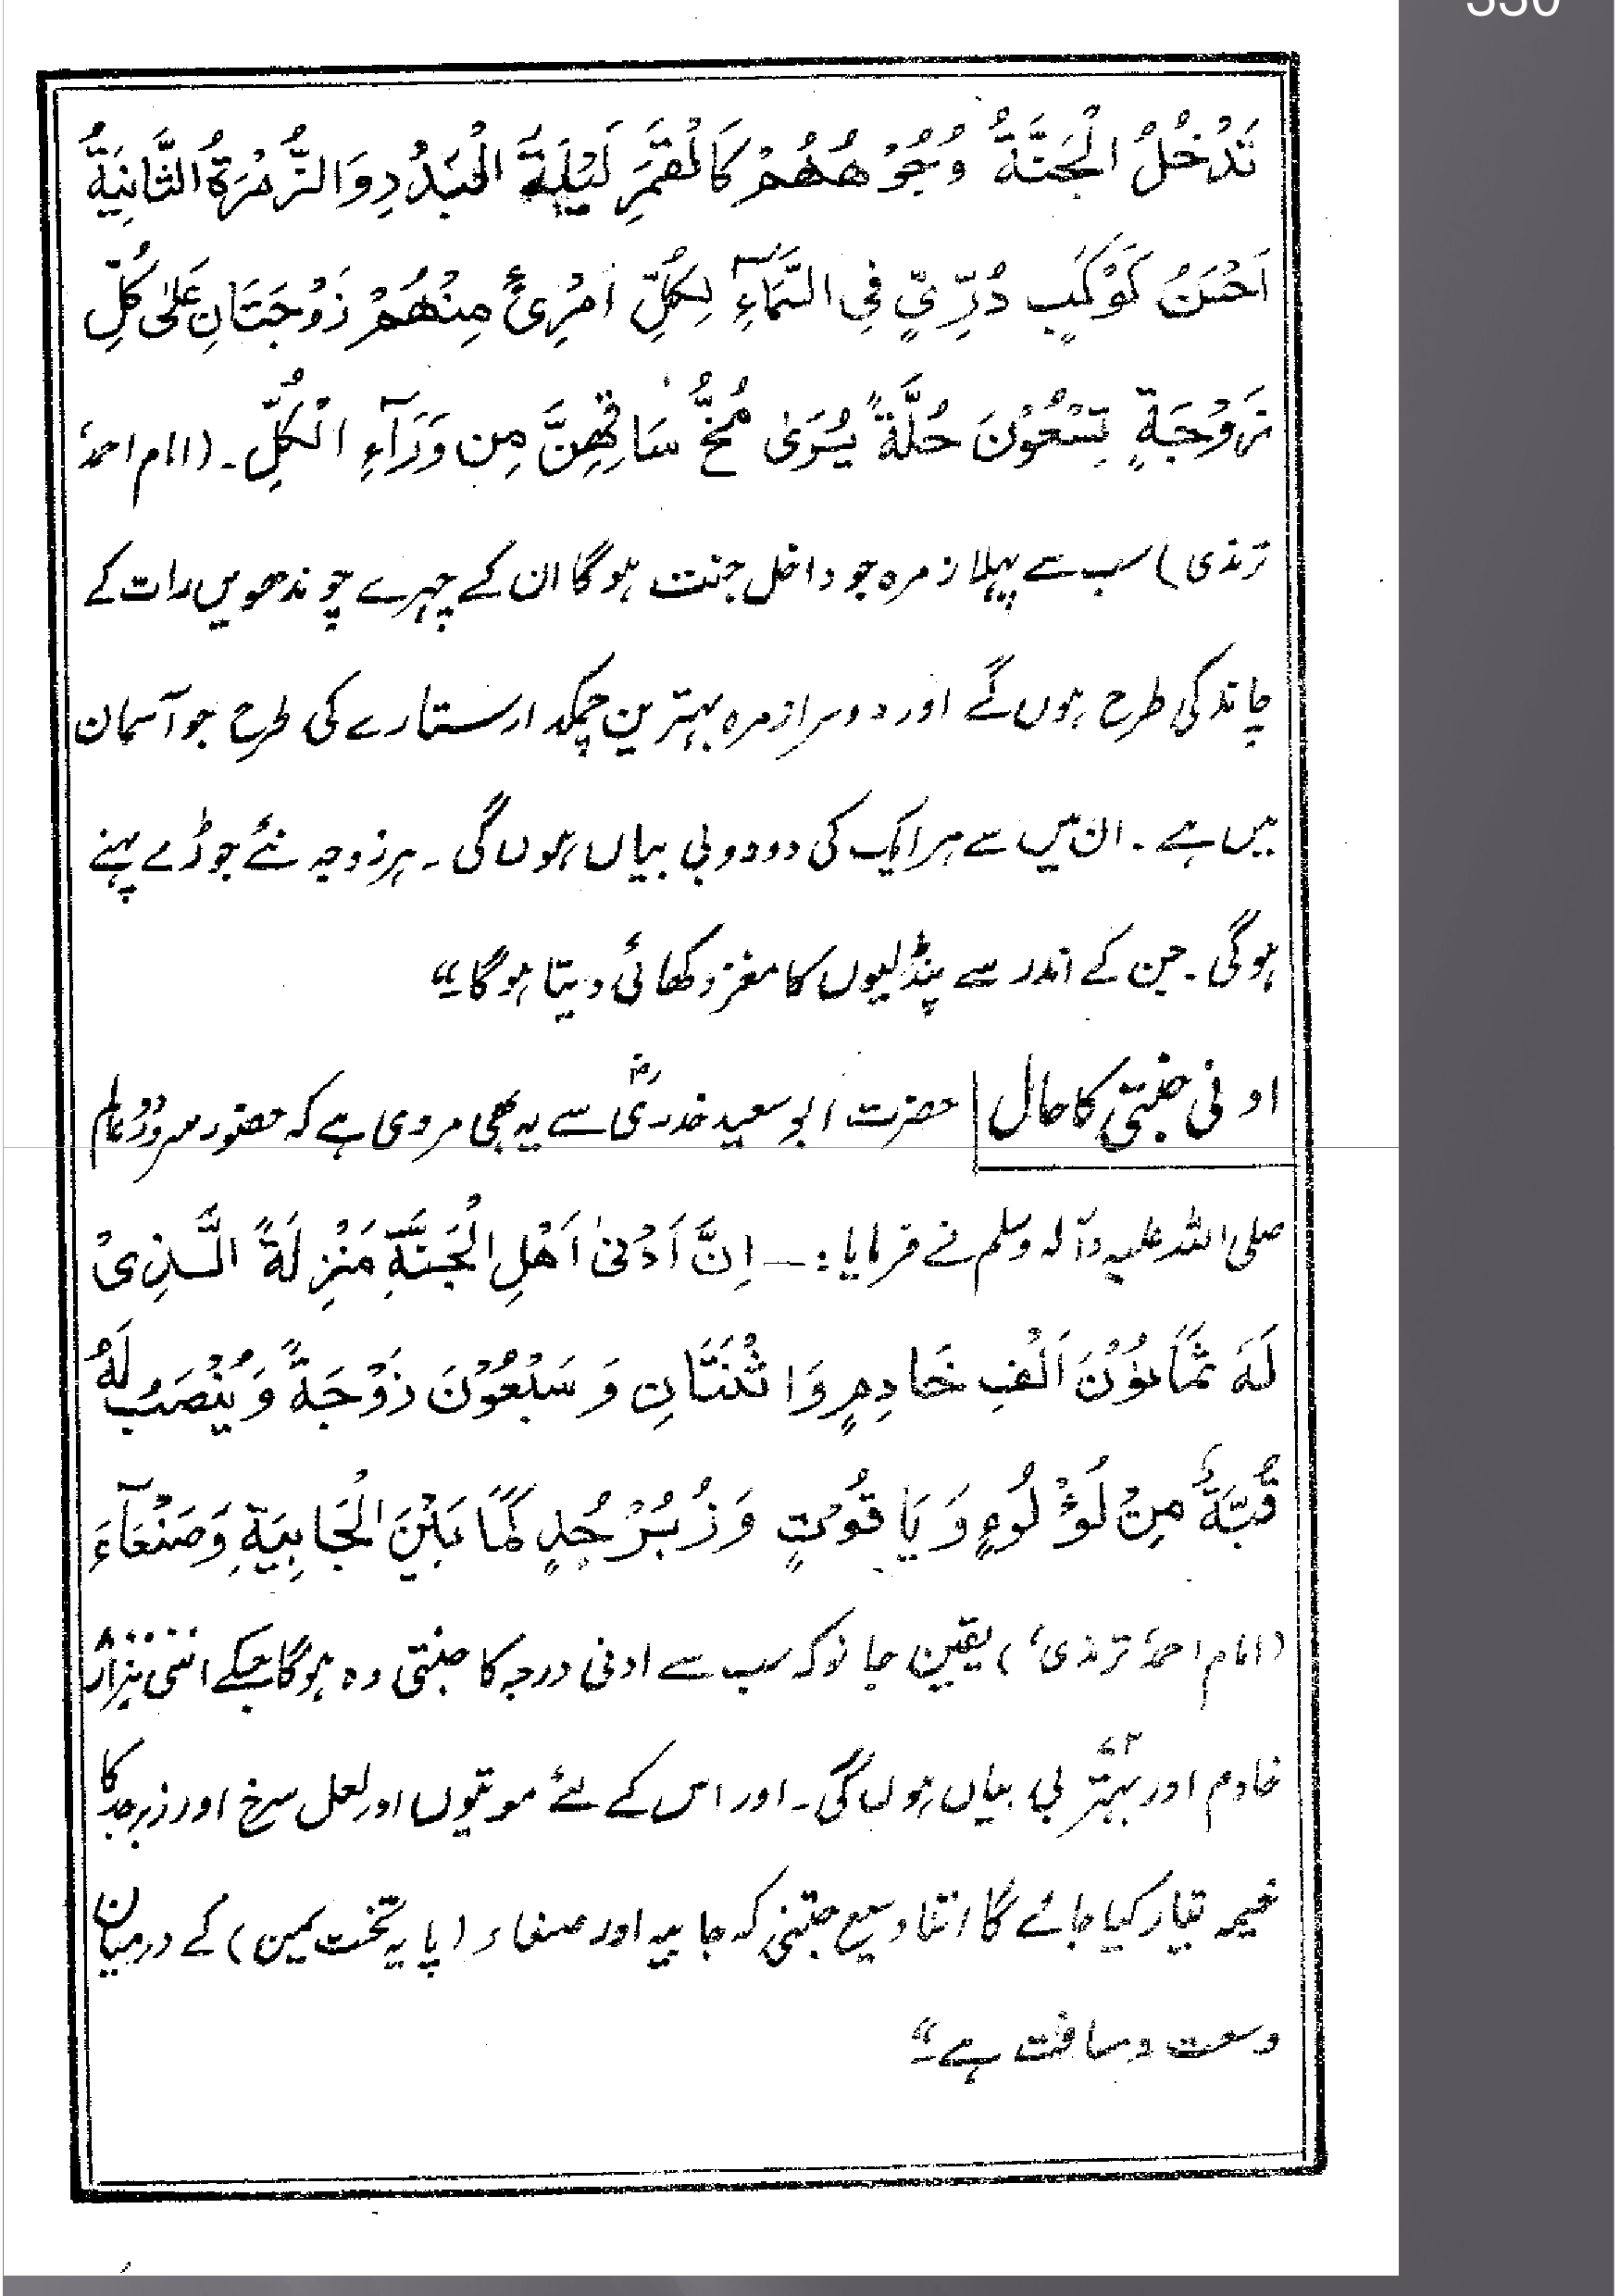 تَدْخُلُ الْجَنَّةَ وُجُوْهُهُمْ كَالْقَمَرِ لَيْلَةَ الْبَدْرِ وَالزُّمْرَةُ الثَّانِيَةُ
اَحْسَنُ كَوْكَبٍ دُرِّيٍّ فِي السَّمَآءِ لِكُلِّ امْرِئٍ مِنْهُمْ زَوْجَتَانِ عَلٰى كُلِّ
زَوْجَةٍ سَبْعُوْنَ حُلَّةً يُرَىٰ مُخُّ سَاقِهِنَّ مِن وَرَآءِ الْكُلِّ ۔ (امام احمدؒ
ترمذی) سب سے پہلا زمرہ جو داخل جنت ہو گا ان کے چہرے چوندھویں رات کے
چاند کی طرح ہوں گے اور دوسرا زمرہ بہترین چمکدار ستارے کی طرح جو آسمان
میں ہے ۔ ان میں سے ہر ایک کی دو دو بی بیاں ہوں گی ۔ ہر زوجہ نئے جوڑے پہنے
ہو گی ۔ جن کے اندر سے پنڈلیوں کا مغز دکھائی دیتا ہو گا ۔"
ادنی جنتی کا حال | حضرت ابو سعید خدریؓ سے یہ بھی مروی ہے کہ حضور سرور دو عالم
صلی اللہ علیہ وآلہ وسلم نے فرمایا :ـ اِنَّ اَدْنىٰ اَهْلِ الْجَنَّةِ مَنْزِلَةً الَّذِىْ
لَهَ ثَمَانُوْنَ اَلْفِ خَادِمٍ وَاثْنَتَانِ وَ سَبْعُوْنَ زَوْجَةً وَ يُنْصَبُ لَهُ
قُبَّةٌ مِنْ لُؤْلُوءٍ وَ يَاقُوْتٍ وَ زُبُرْجُدٍ كَمَا بَيْنَ الْجَابِيَةِ وَصَنْعَآءَ
(امام احمدؒ ترمذیؒ) یقین جانو کہ سب سے ادنی درجہ کا جنتی وہ ہو گا جسکے اسّی ہزار ۸۰۰۰۰
خادم اور بہتّر ۷۲ بی بیاں ہوں گی ۔ اور اس کے لئے موتیوں اور لعل سرخ اور زبرجد کا
خیمہ تیار کیا جائے گا اتنا وسیع جتنی کہ جابیہ اور صنعاء (پایہ تخت یمن) کے درمیان
وسعت و مسافت ہے ۔"